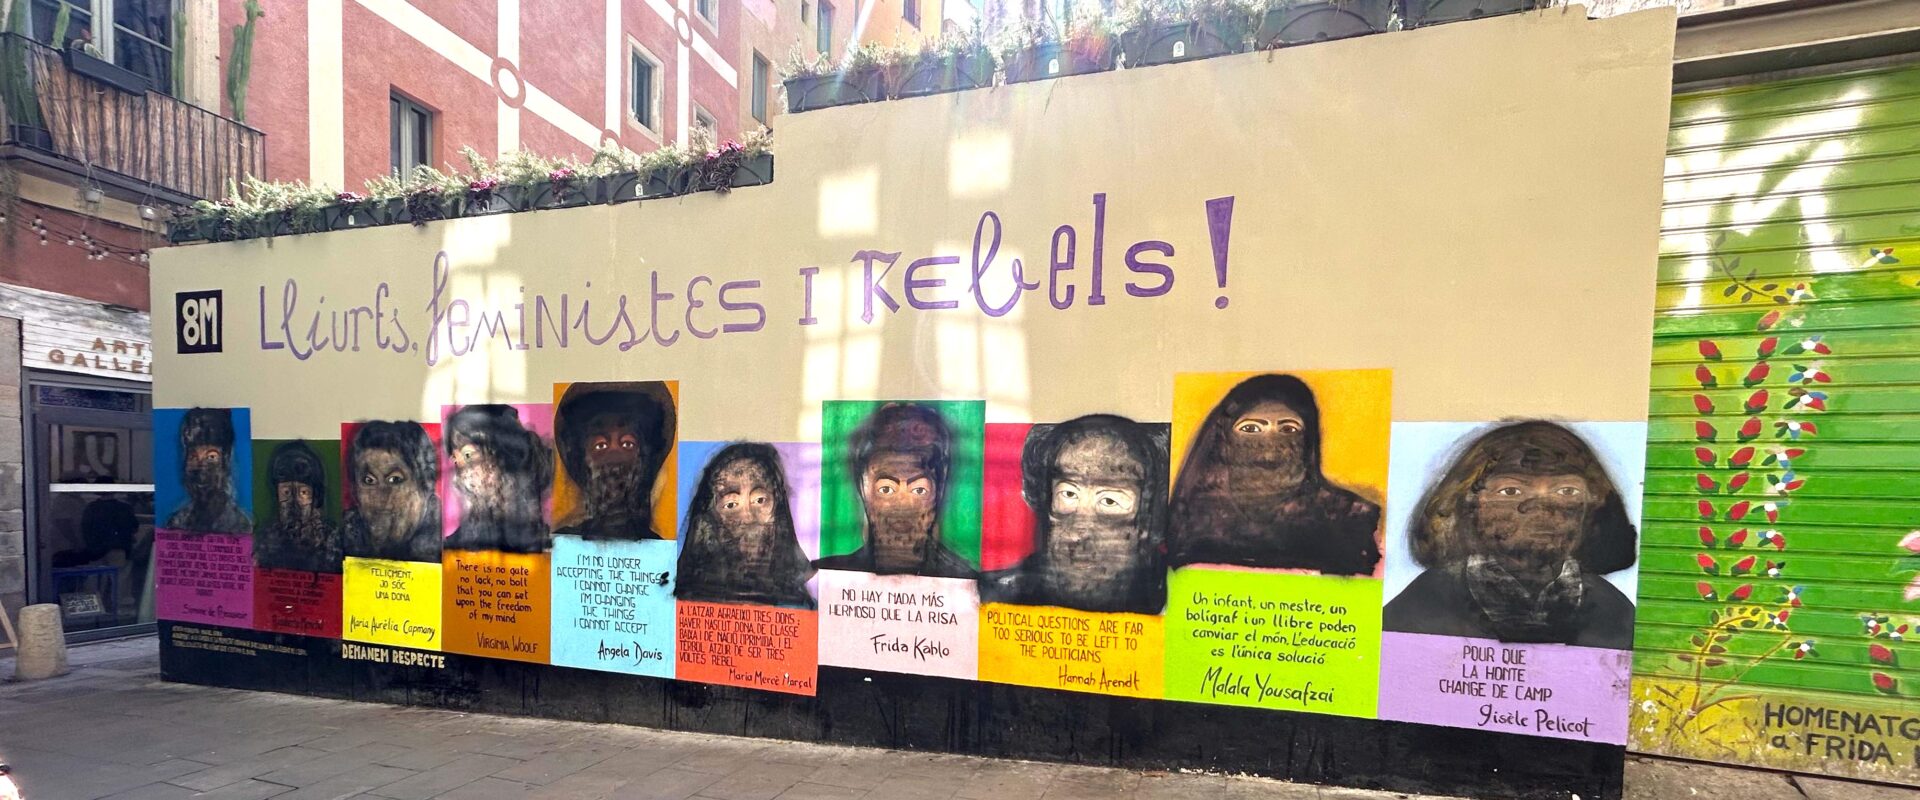 8M
Lliures, feministes i rebels!
ART
GALLE
Simone de Beauvoir
Rigoberta Menchú
FELIÇMENT,
JO SÓC
UNA DONA
Maria Aurèlia Capmany
DEMANEM RESPECTE
There is no gate
no lock, no bolt
that you can set
upon the freedom
of my mind
VIRGINIA WOOLF
I'M NO LONGER
ACCEPTING THE THINGS
I CANNOT CHANGE
I'M CHANGING
THE THINGS
I CANNOT ACCEPT
Angela Davis
A L'ATZAR AGRAEIXO TRES DONS:
HAVER NASCUT DONA, DE CLASSE
BAIXA I DE NACIÓ OPRIMIDA. I EL
TÈRBOL ATZUR DE SER TRES
VOLTES REBEL.
Maria Mercè Marçal
NO HAY NADA MÁS
HERMOSO QUE LA RISA
Frida Kahlo
POLITICAL QUESTIONS ARE FAR
TOO SERIOUS TO BE LEFT TO
THE POLITICIANS
Hannah Arendt
Un infant, un mestre, un
bolígraf i un llibre poden
canviar el món. L'educació
es l'única solució
Malala Yousafzai
POUR QUE
LA HONTE
CHANGE DE CAMP
gisèle Pelicot
HOMENATG
a FRIDA